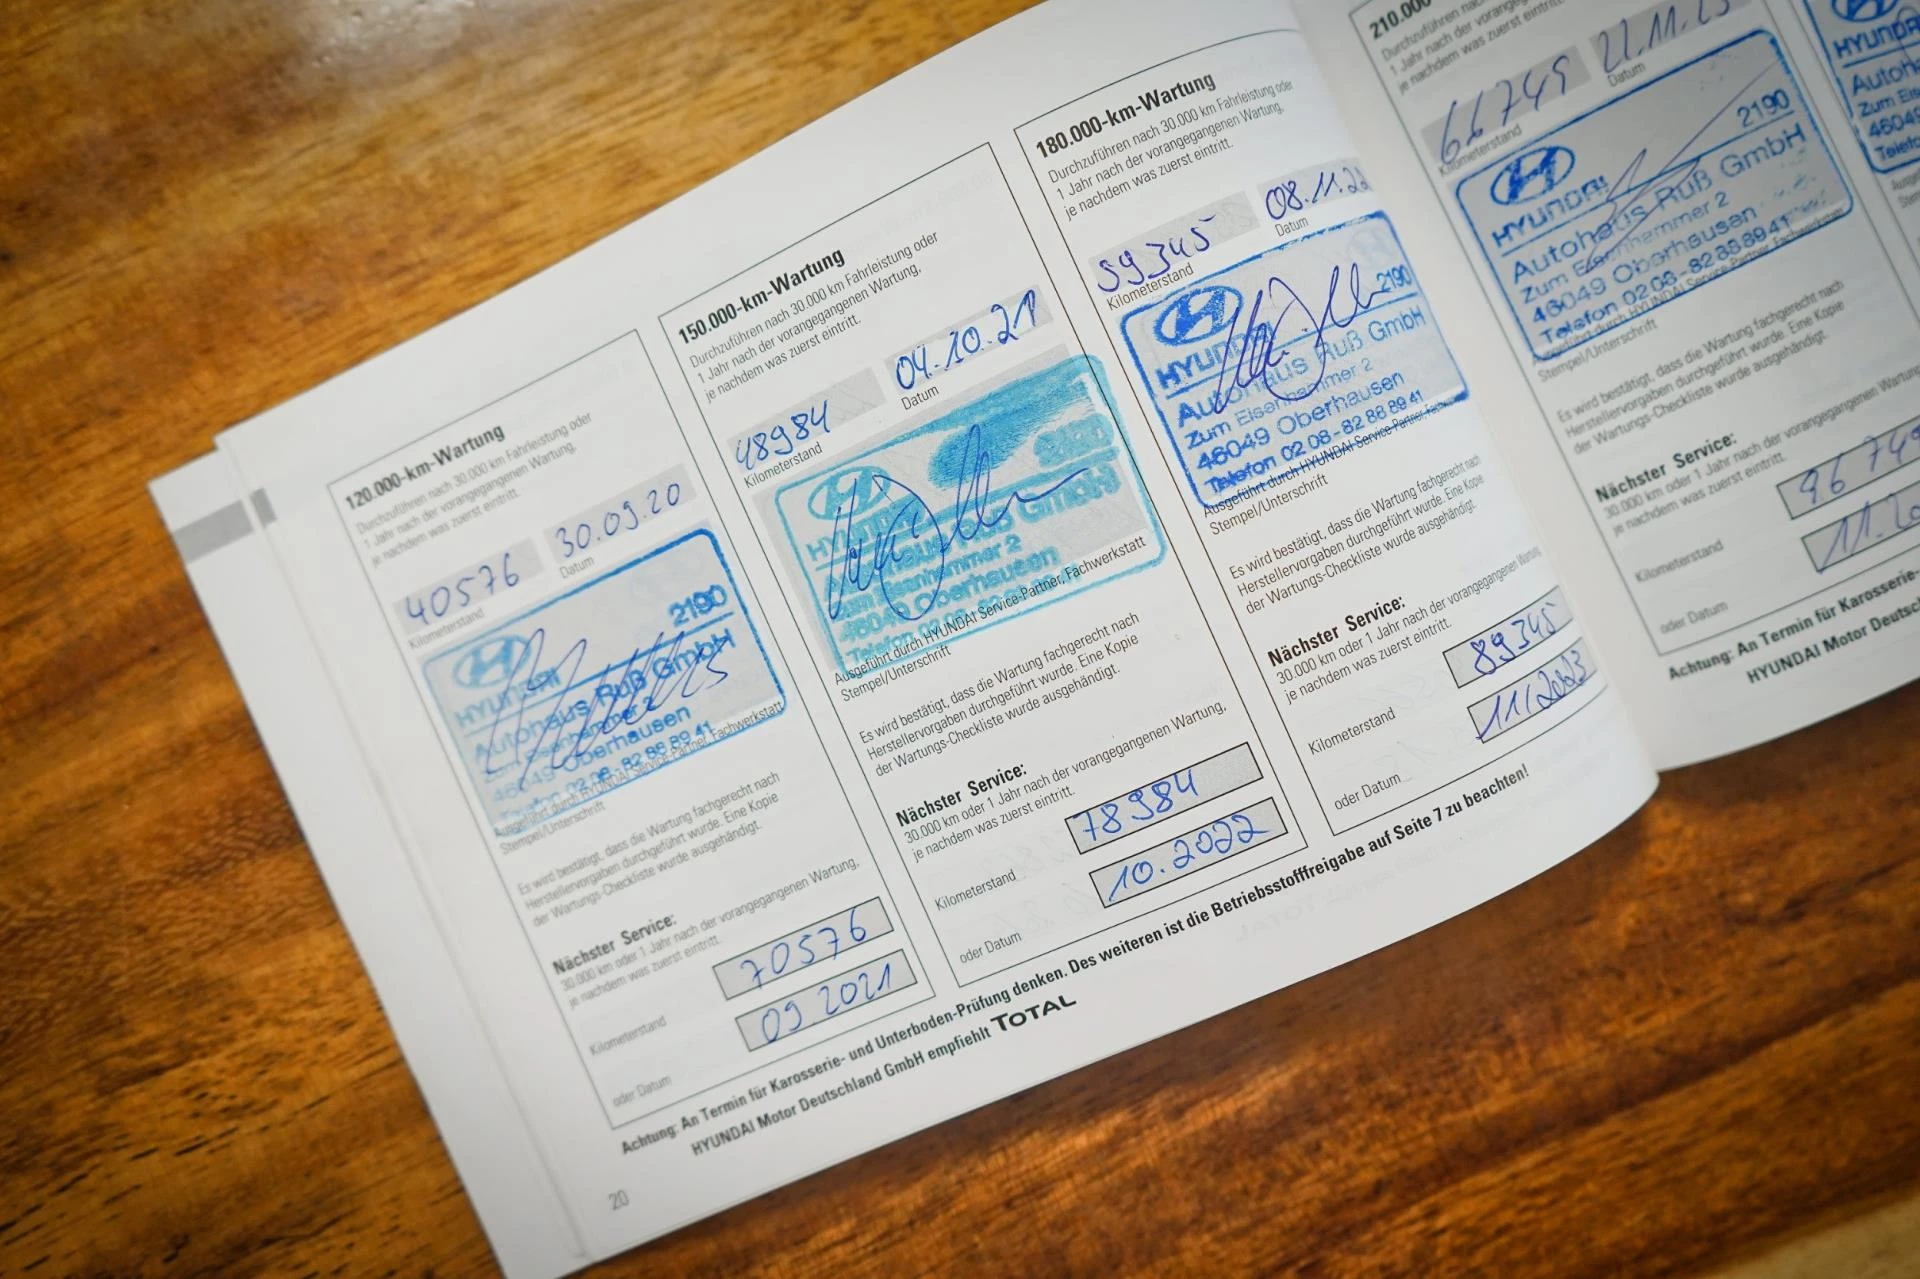 120.000-km-Wartung
Durchzuführen nach 30.000 km Fahrleistung oder
1 Jahr nach der vorangegangenen Wartung,
je nachdem was zuerst eintritt.
40576 30.09.20
Kilometerstand Datum
2190
HYUNDAI
Autohaus Ruß GmbH
Zum Eisenhammer 2
46049 Oberhausen
Telefon 02 08 - 82 88 89 41
Ausgeführt durch HYUNDAI Service-Partner, Fachwerkstatt
Stempel/Unterschrift
Es wird bestätigt, dass die Wartung fachgerecht nach
Herstellervorgaben durchgeführt wurde. Eine Kopie
der Wartungs-Checkliste wurde ausgehändigt.
Nächster Service:
30.000 km oder 1 Jahr nach der vorangegangenen Wartung,
je nachdem was zuerst eintritt.
Kilometerstand 70576
oder Datum 09 2021
150.000-km-Wartung
Durchzuführen nach 30.000 km Fahrleistung oder
1 Jahr nach der vorangegangenen Wartung,
je nachdem was zuerst eintritt.
48984 04.10.21
Kilometerstand Datum
2190
HYUNDAI
Autohaus Ruß GmbH
Zum Eisenhammer 2
46049 Oberhausen
Telefon 02 08 - 82 88
Ausgeführt durch HYUNDAI Service-Partner, Fachwerkstatt
Stempel/Unterschrift
Es wird bestätigt, dass die Wartung fachgerecht nach
Herstellervorgaben durchgeführt wurde. Eine Kopie
der Wartungs-Checkliste wurde ausgehändigt.
Nächster Service:
30.000 km oder 1 Jahr nach der vorangegangenen Wartung,
je nachdem was zuerst eintritt.
Kilometerstand 78984
oder Datum 10.2022
180.000-km-Wartung
Durchzuführen nach 30.000 km Fahrleistung oder
1 Jahr nach der vorangegangenen Wartung,
je nachdem was zuerst eintritt.
59345 08.11.22
Kilometerstand Datum
2190
HYUNDAI
Autohaus Ruß GmbH
Zum Eisenhammer 2
46049 Oberhausen
Telefon 02 08 - 82 88 89 41
Ausgeführt durch HYUNDAI Service-Partner,
Stempel/Unterschrift
Es wird bestätigt, dass die Wartung fachgerecht nach
Herstellervorgaben durchgeführt wurde. Eine Kopie
der Wartungs-Checkliste wurde ausgehändigt.
Nächster Service:
30.000 km oder 1 Jahr nach der vorangegangenen Wartung
je nachdem was zuerst eintritt.
Kilometerstand 89345
oder Datum 11/2023
Achtung: An Termin für Karosserie- und Unterboden-Prüfung denken. Des weiteren ist die Betriebsstofffreigabe auf Seite 7 zu beachten!
HYUNDAI Motor Deutschland GmbH empfiehlt TOTAL
20
210.000
Durchzuführen nach
1 Jahr nach der
je nachdem was zuerst eintritt.
66749 22.11.23
Kilometerstand Datum
2190
HYUNDAI
Autohaus Ruß GmbH
Zum Eisenhammer 2
46049 Oberhausen
Telefon 02 08 - 82 88 89 41
Ausgeführt durch HYUNDAI Service-Partner, Fachwerkstatt
Stempel/Unterschrift
Es wird bestätigt, dass die Wartung fachgerecht nach
Herstellervorgaben durchgeführt wurde. Eine Kopie
der Wartungs-Checkliste wurde ausgehändigt.
Nächster Service:
30.000 km oder 1 Jahr nach der vorangegangenen Wartung
je nachdem was zuerst eintritt.
Kilometerstand 96749
oder Datum
Achtung: An Termin für Karosserie-
HYUNDAI Motor
HYUNDAI
Zum